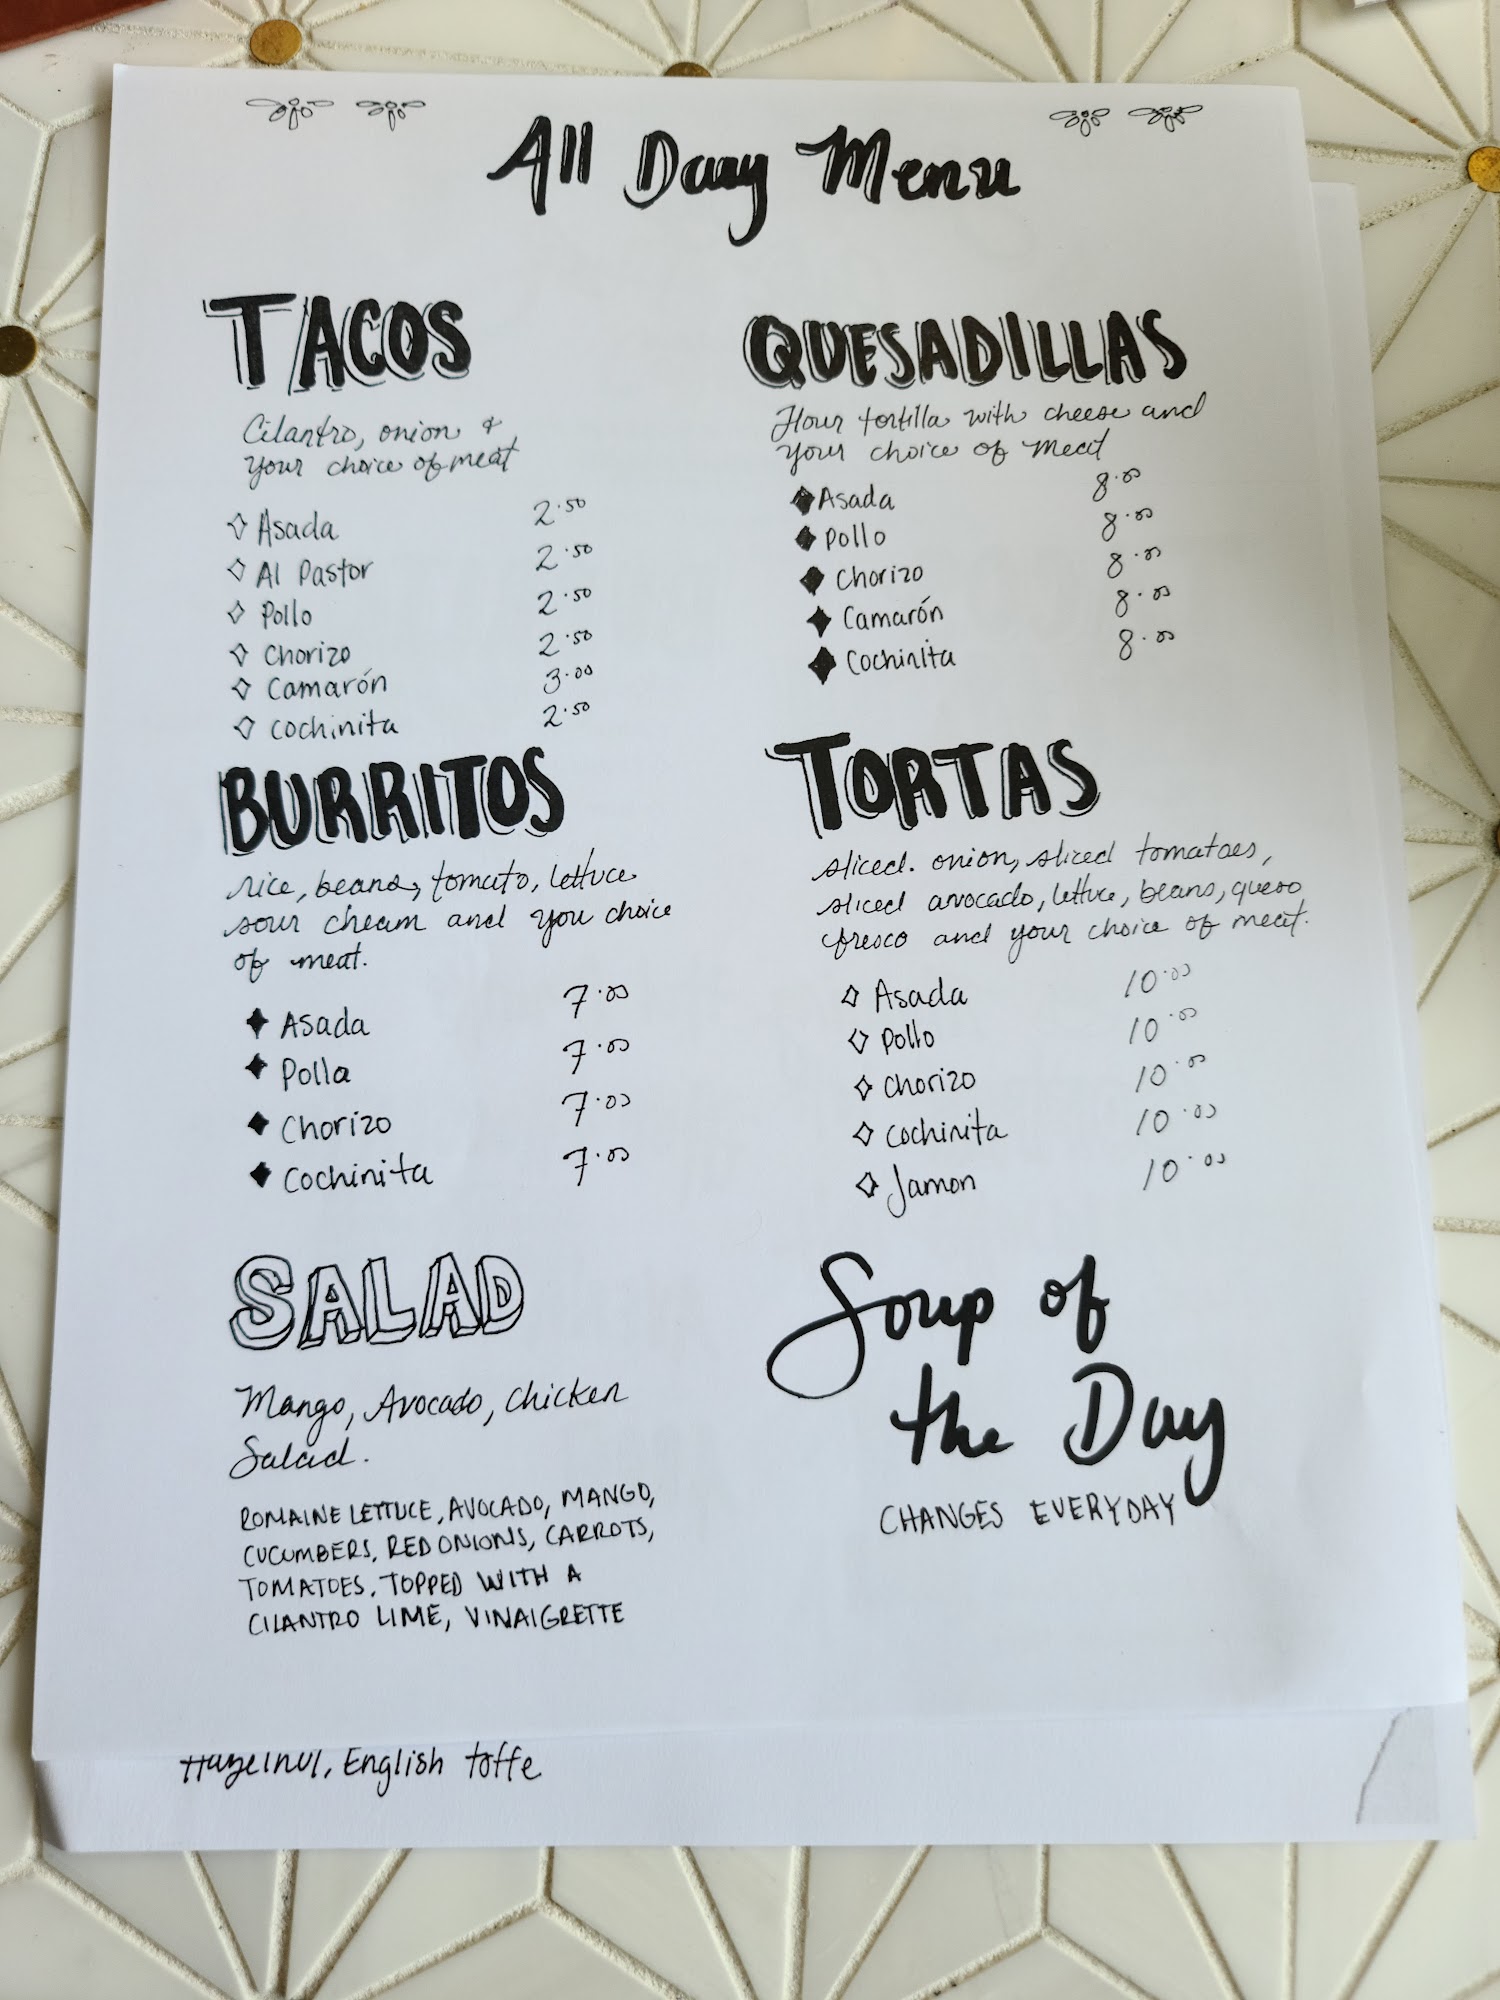 All Day Menu
TACOS
Cilantro, onion &
your choice of meat
Asada 2.50
Al Pastor 2.50
Pollo 2.50
Chorizo 2.50
Camarón 3.00
Cochinita 2.50
BURRITOS
rice, beans, tomato, lettuce
sour cream and you choice
of meat.
Asada 7.00
Polla 7.00
Chorizo 7.00
Cochinita 7.00
SALAD
Mango, Avocado, Chicken
Salad.
ROMAINE LETTUCE, AVOCADO, MANGO,
CUCUMBERS, RED ONIONS, CARROTS,
TOMATOES, TOPPED WITH A
CILANTRO LIME, VINAIGRETTE
QUESADILLAS
Flour tortilla with cheese and
your choice of meat
Asada 8.00
Pollo 8.00
Chorizo 8.00
Camarón 8.00
Cochinita 8.00
TORTAS
sliced. onion, sliced tomatoes,
sliced avocado, lettuce, beans, queso
fresco and your choice of meat.
Asada 10.00
Pollo 10.00
Chorizo 10.00
Cochinita 10.00
Jamon 10.00
Soup of
the Day
CHANGES EVERYDAY
Hazelnut, English toffe